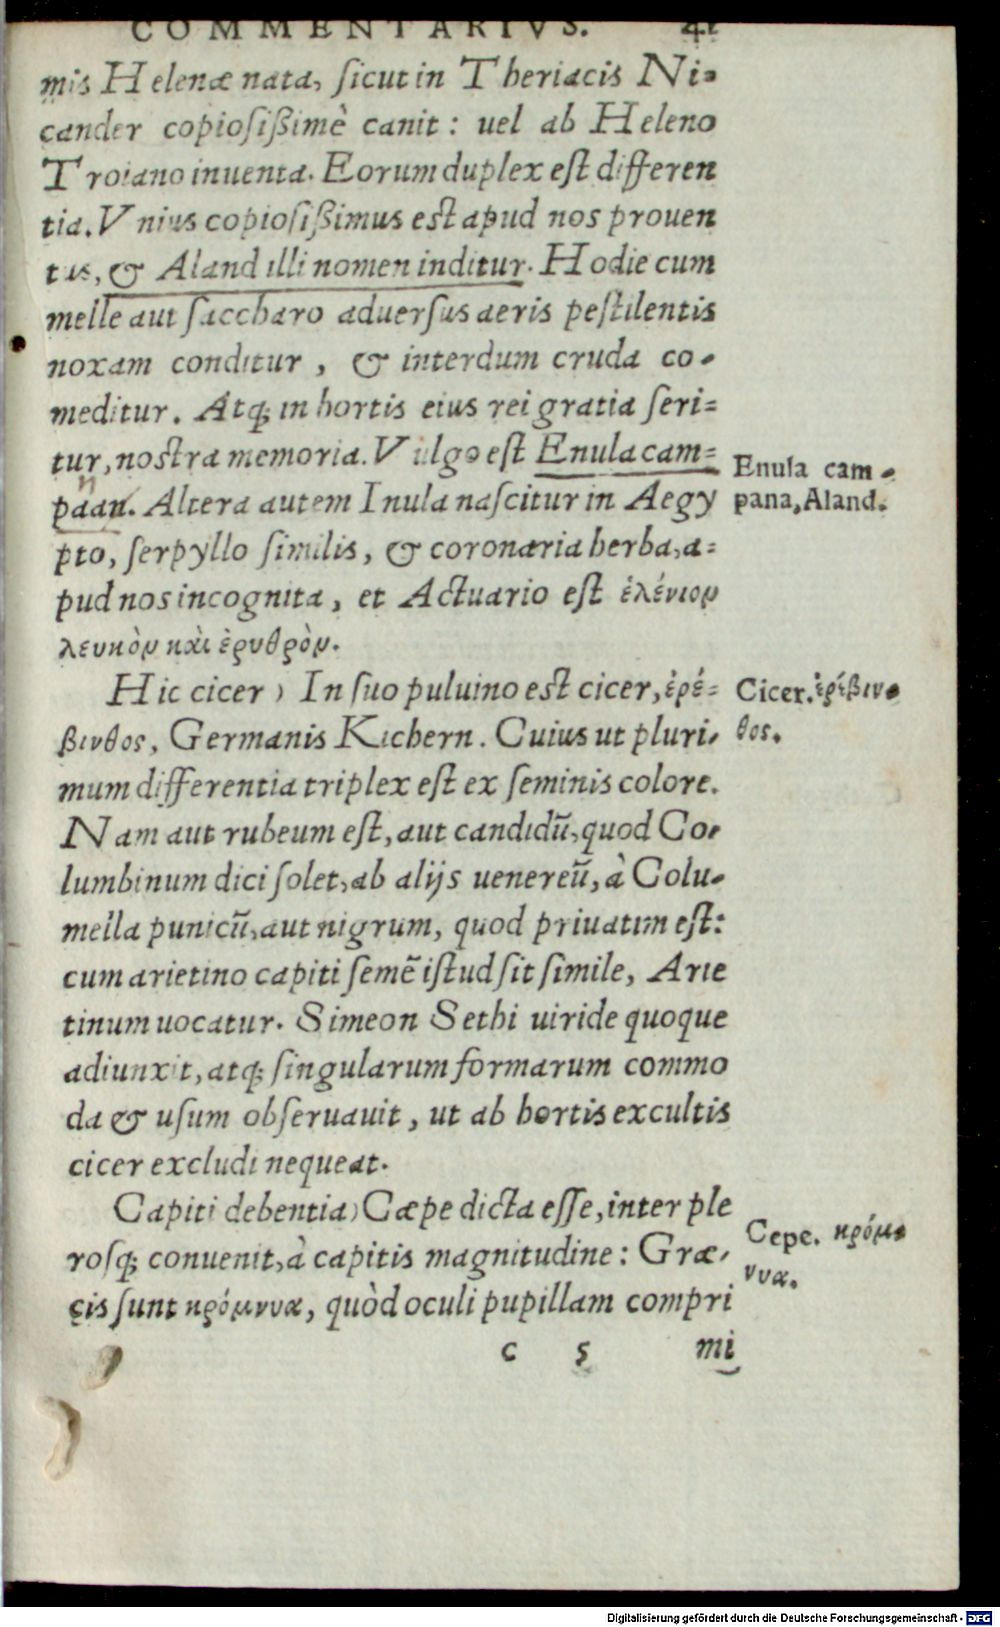 COMMENTARIVS. 41
mis Helenæ nata, ſicut in Theriacis Ni-
cander copioſißimè canit: uel ab Heleno
Troiano inuenta. Eorum duplex eſt differen
tia. Vnius copioſißimus eſt apud nos prouen
tus, & Aland illi nomen inditur. Hodie cum
melle aut ſaccharo aduerſus aeris peſtilentis
noxam conditur, & interdum cruda co-
meditur. Atq; in hortis eius rei gratia ſeri-
tur, noſtra memoria. Vulgo eſt Enula cam-
paan. Altera autem Inula naſcitur in Aegy
Enula cam-
pana, Aland.
pto, ſerpyllo ſimilis, & coronaria herba, a-
pud nos incognita, et Actuario eſt ἑλένιον
λευκὸν καὶ ἐρυθρὸν.
Hic cicer) In ſuo puluino eſt cicer, ἐρέ-
Cicer. ἐρέβιν-
θος.
βινθος, Germanis Kichern. Cuius ut pluri-
mum differentia triplex eſt ex ſeminis colore.
Nam aut rubeum eſt, aut candidũ, quod Co-
lumbinum dici ſolet, ab alijs uenereũ, à Colu-
mella punicũ, aut nigrum, quod priuatim eſt:
cum arietino capiti ſemẽ iſtud ſit ſimile, Arie
tinum uocatur. Simeon Sethi uiride quoque
adiunxit, atq; ſingularum formarum commo
da & uſum obſeruauit, ut ab hortis excultis
cicer excludi nequeat.
Capiti debentia) Cæpe dicta eſſe, inter ple
roſq; conuenit, à capitis magnitudine: Græ-
Cepe. κρόμ-
νυα.
cis ſunt κρόμνυα, quòd oculi pupillam compri
c 5 mi
Digitalisierung gefördert durch die Deutsche Forschungsgemeinschaft - DFG